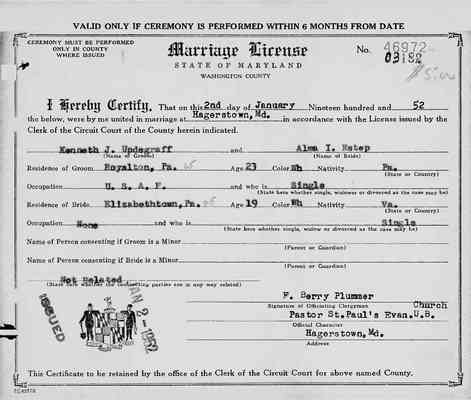 VALID ONLY IF CEREMONY IS PERFORMED WITHIN 6 MONTHS FROM DATE
CEREMONY MUST BE PERFORMED
ONLY IN COUNTY
WHERE ISSUED
Marriage License
STATE OF MARYLAND
WASHINGTON COUNTY
No. 46972
03182
I Hereby Certify, That on this 2nd day of January Nineteen hundred and 52
the below, were by me united in marriage at Hagerstown, Md. in accordance with the License issued by the
Clerk of the Circuit Court of the County herein indicated.
Kenneth J. Updegraff and Alma I. Estep
(Name of Groom) (Name of Bride)
Residence of Groom Royalton, Pa. Age 23 Color Wh Nativity Pa.
(State or County)
Occupation U. S. A. F. and who is Single
(State here whether single, widower or divorced as the case may be)
Residence of Bride Elizabethtown, Pa. Age 19 Color Wh Nativity Va.
(State or County)
Occupation None and who is Single
(State here whether single, widow or divorced as the case may be)
Name of Person consenting if Groom is a Minor
(Parent or Guardian)
Name of Person consenting if Bride is a Minor
(Parent or Guardian)
Not Related
(State here whether the contracting parties are in any way related)
ISSUED
JAN 2-1952
F. Berry Plummer
Signature of Officiating Clergyman
Church
Pastor St. Paul's Evan. U.B.
Official Character
Hagerstown, Md.
Address
This Certificate to be retained by the office of the Clerk of the Circuit Court for above named County.